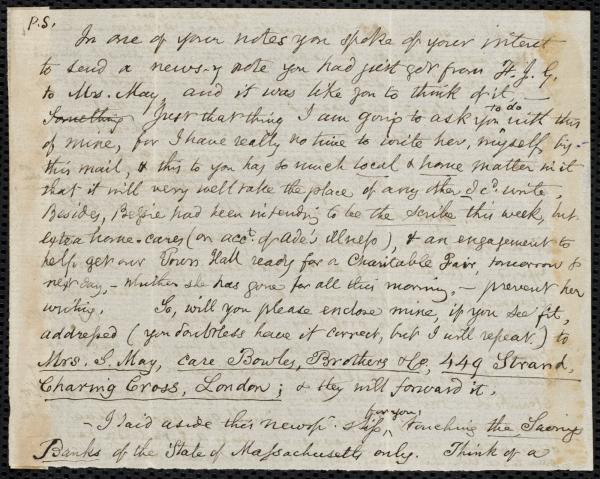 P.S.
In one of your notes you spoke of your intent
to send a news-y note you had just got from H. J. G.
to Mrs. May, and it was like you to think of it.
Something Just that thing I am going to ask you to do with this
of mine, for I have really no time to write her, myself, by
this mail, & this to you has so much local & home matter in it
that it will very well take the place of any other I cd. write.
Besides, Bessie had been intending to be the scribe this week, but
extra home-cares (on acct. of Ade's illness), & an engagement to
help get our Town Hall ready for a Charitable Fair, tomorrow &
next day, - whither she has gone for all this morning, - prevent her
writing. So, will you please enclose mine, if you see fit,
addressed (you doubtless have it correct, but I will repeat) to
Mrs. S. May, care Bowles, Brothers & Co, 449 Strand,
Charing Cross, London; & they will forward it.
- I laid aside this newsp. slip, for you, touching the Saving
Banks of the State of Massachusetts only. Think of a